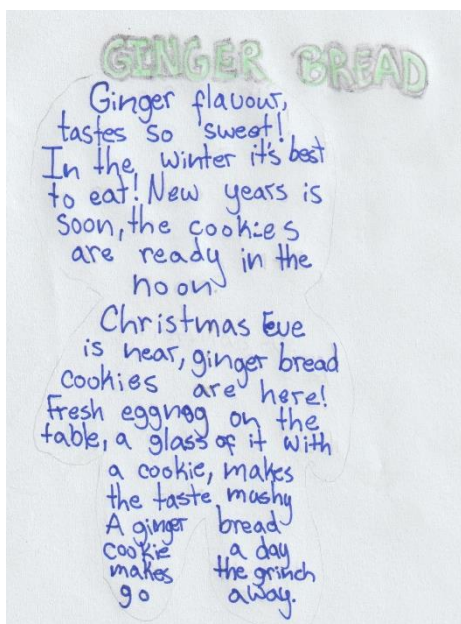 GINGER BREAD
Ginger flavour,
tastes so sweet!
In the winter it's best
to eat! New years is
soon, the cookies
are ready in the
noon.
Christmas Eve
is near, ginger bread
cookies are here!
Fresh eggnog on the
table, a glass of it with
a cookie, makes
the taste mushy
A ginger bread
cookie a day
makes the grinch
go away.